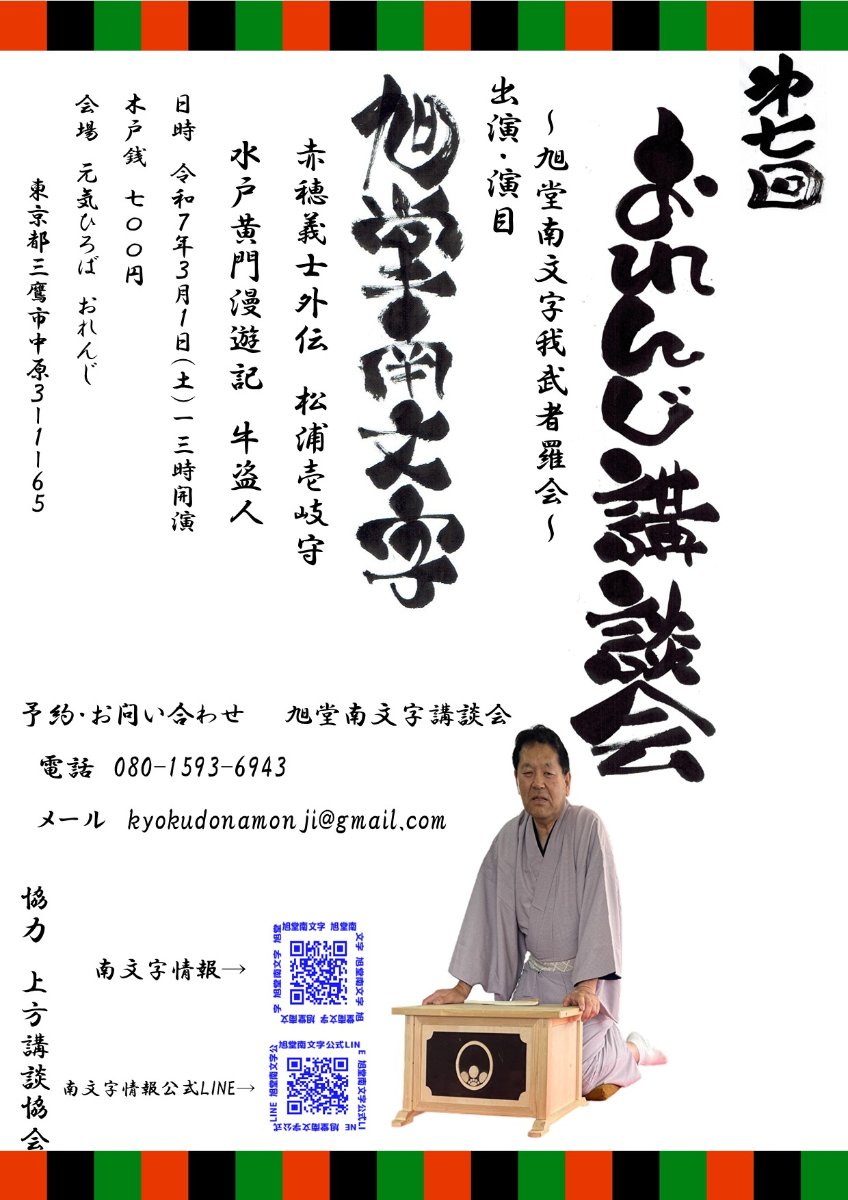 第七回
おれんじ講談会
～旭堂南文字我武者羅会～
出演・演目
旭堂南文字
赤穂義士外伝 松浦壱岐守
水戸黄門漫遊記 牛盗人
日時 令和7年3月1日(土)一三時開演
木戸銭 七〇〇円
会場 元気ひろば おれんじ
東京都三鷹市中原3-1-65
予約・お問い合わせ 旭堂南文字講談会
電話 080-1593-6943
メール kyokudonamonji@gmail.com
協力 上方講談協会
南文字情報→
旭堂南文字 旭堂南文字 旭堂南文字 旭堂南文字 旭堂南文字 旭堂南文字
南文字情報公式LINE→
旭堂南文字公式LINE 旭堂南文字公式LINE 旭堂南文字公式LINE 旭堂南文字公式LINE